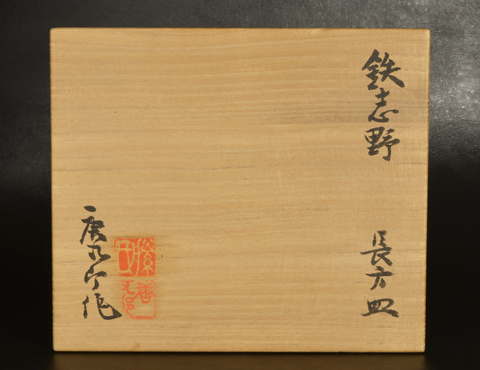 鉄志野
長方皿
唐九郎作